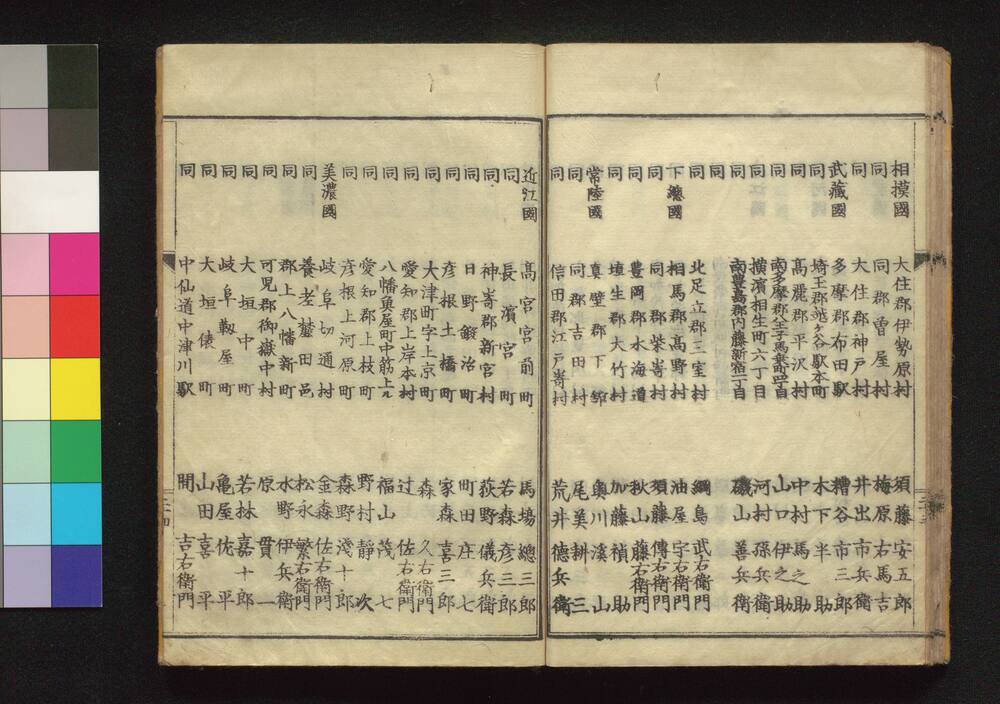 相摸國 大住郡伊勢原村 須藤安五郎
同 同郡曽屋村 梅原右馬吉
同 大住郡神戸村 井出市兵衛
武藏國 多摩郡布田駅 糟谷市三郎
同 埼玉郡越ヶ谷駅本町 木下半助
同 高麗郡平沢村 中村馬之助
同 南多摩郡八王子 山口伊之助
同 横濱相生町六丁目 河村孫兵衛
同 南豊嶌郡内藤新宿一丁目 磯山善兵衛
同
同 北足立郡三室村 綱島武右衛門
下總國 相馬郡高野村 油屋宇右衛門
同 同郡柴嵜村 須藤傳右衛門
同 豊岡郡水海道 秋山藤右衛門
同 埴生郡大竹村 加藤禎助
常陸國 真壁郡下館 奥川溪山
同郡吉田村 尾見耕三
同 信田郡江戸嵜村 荒井德兵衛
近江國 髙宮宮前町 馬場總三郎
同 長濱宮町 若森彦三郎
同 神嵜郡新宮村 荻野儀兵衛
同 日野鍛冶町 町田庄七
同 彦根土橋町 家森喜三郎
同 大津町字上京町 森久右衛門
同 愛知郡上岸本村 辻佐右衛門
同 八幡魚屋町中筋上ル 福山茂七
同 愛知郡上枝村 野村静次
同 彦根上河原町 森野淺十郎
美濃國 岐阜切通村 金森佐右衛門
同 養老鷲田邑 松永繁右衛門
同 郡上八幡新町 水野伊兵衛
同 可児郡御嶽中村 原貫一
同 大垣中町 若林嘉十郎
同 岐阜靱屋町 亀屋佐平
同 大垣俵町 山田喜平
同 中仙道中津川駅 間吉右衛門